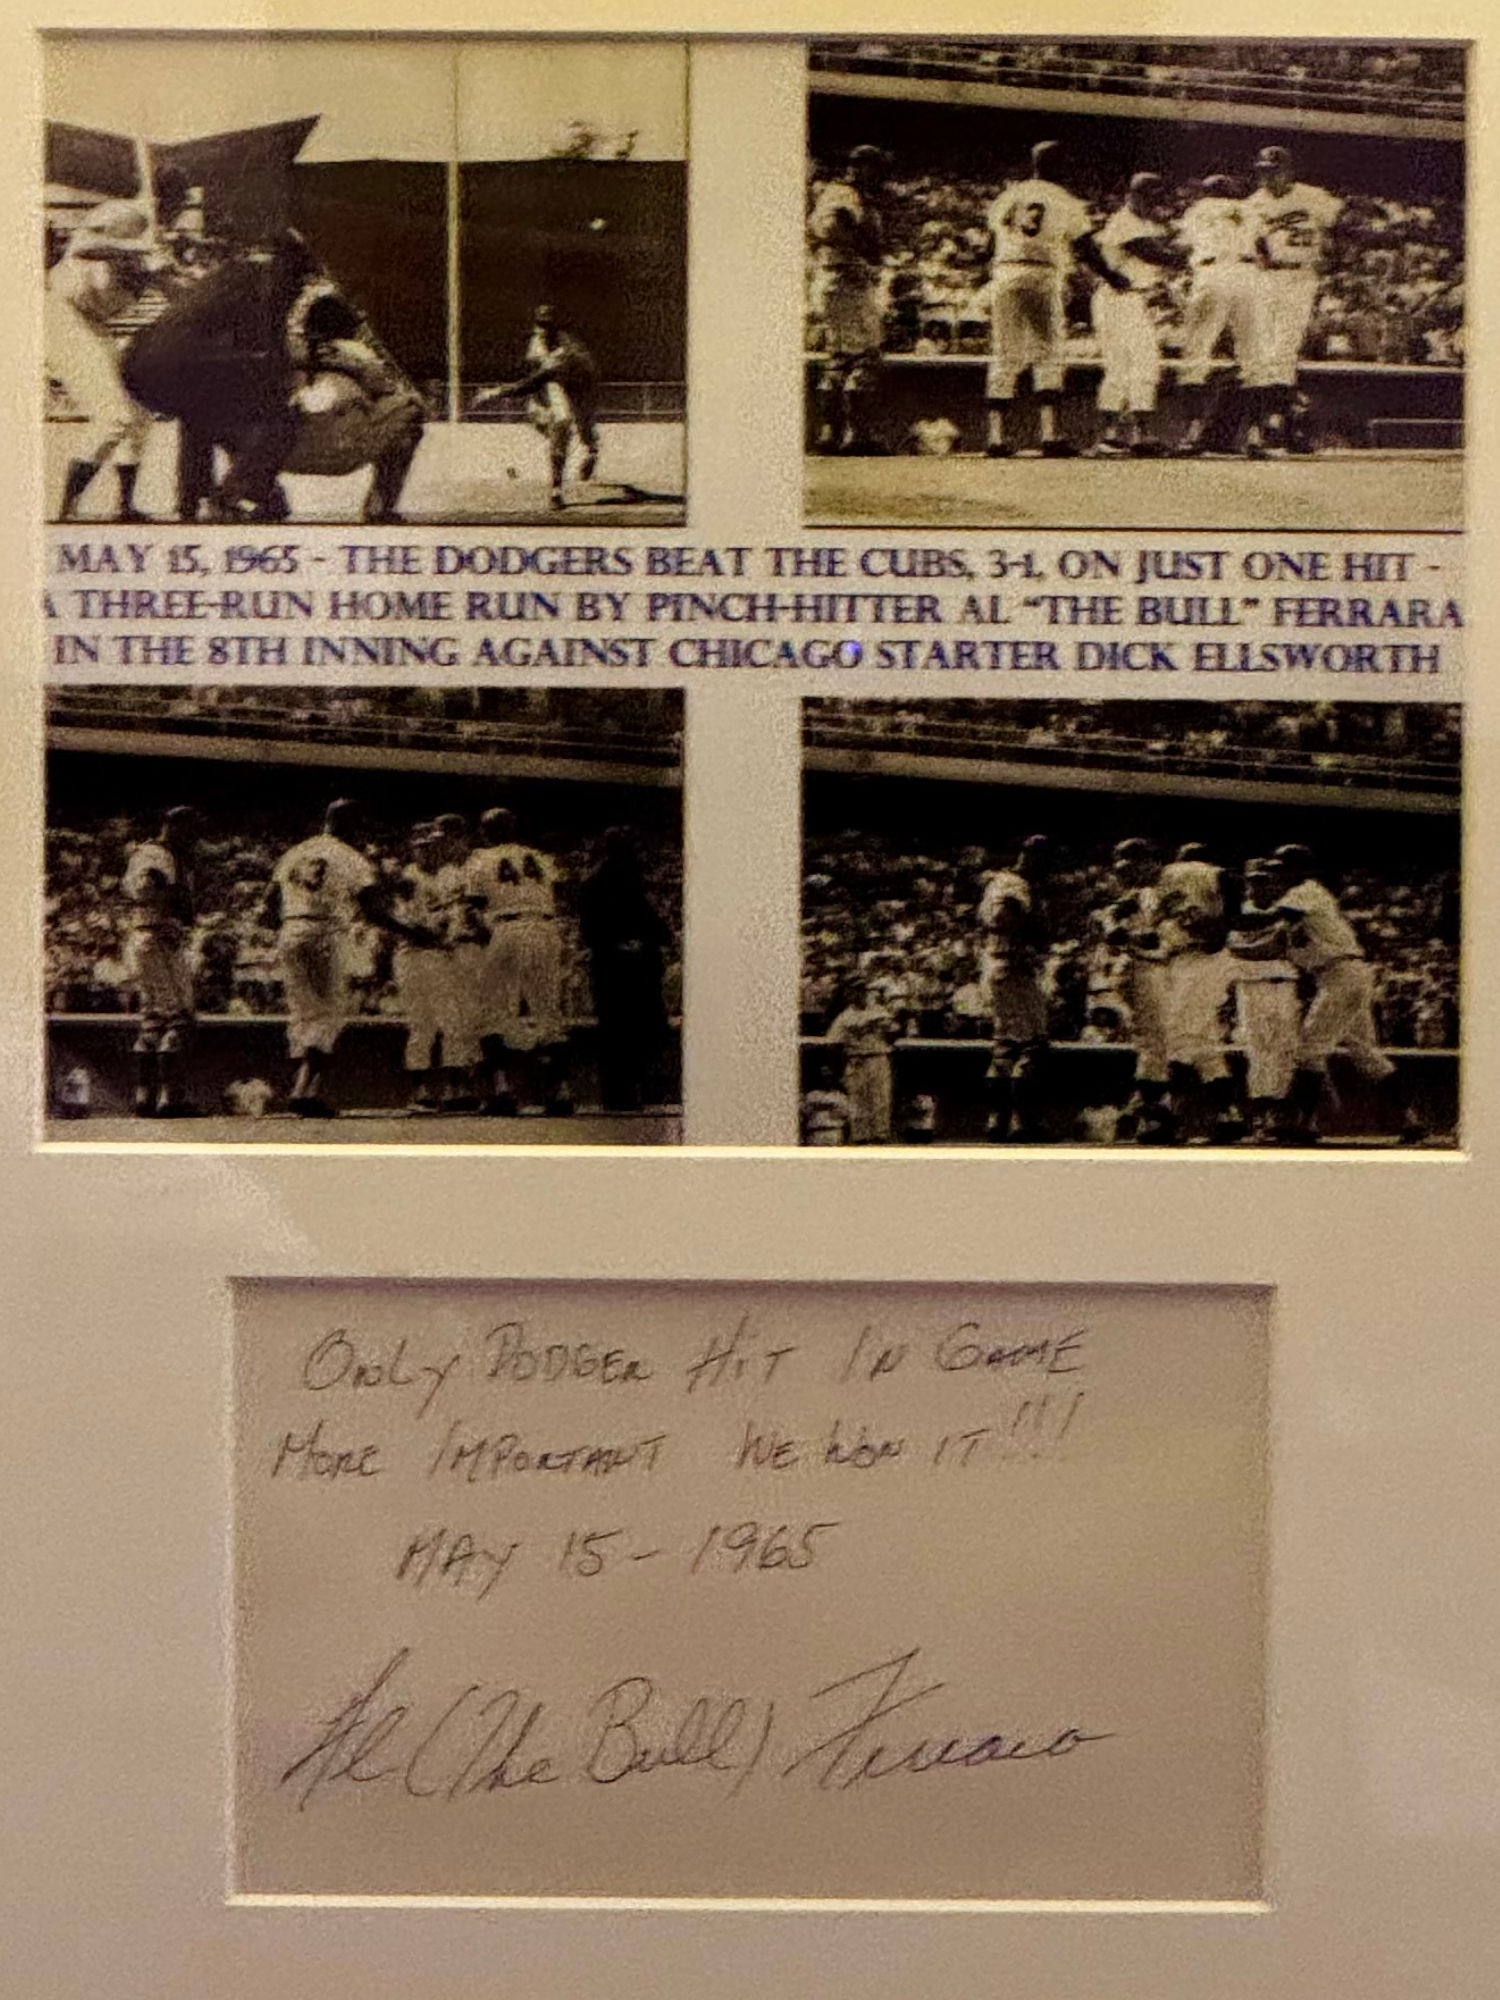 43
MAY 15, 1965 - THE DODGERS BEAT THE CUBS, 3-1, ON JUST ONE HIT -
A THREE-RUN HOME RUN BY PINCH-HITTER AL "THE BULL" FERRARA
IN THE 8TH INNING AGAINST CHICAGO STARTER DICK ELLSWORTH
44
ONLY DODGER HIT IN GAME
MORE IMPORTANT WE WON IT!!!
MAY 15 - 1965
Al (The Bull) Ferrara